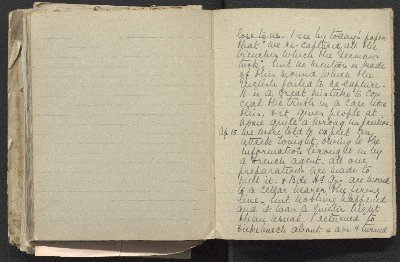 lose to us. I see by today's paper
that "we re-captured all the
trenches which the Germans
took", but no mention is made
of this mound which the
failed to re-capture.
It is a great mistake to con-
ceal the truth in a case like
this, & it gives people at
home quite a wrong impression.
Ap. 15. We were told to expect an
attack tonight, owing to the
information brought in by
a French agent. All our
preparations are made to
meet it. & Bde Hd Qrs are moved
to a cellar nearer the firing
line. but nothing happened
and it was a quieter night
than usual. I returned to
about 4 am & turned